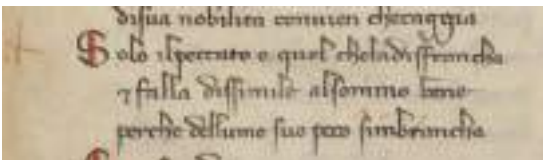 disua nobilita convien checaggia
Solo ilpeccato e quel cheladisfrancha
⁊ falla dissimile alsommo bene
perche dellume suo poco simbiancha